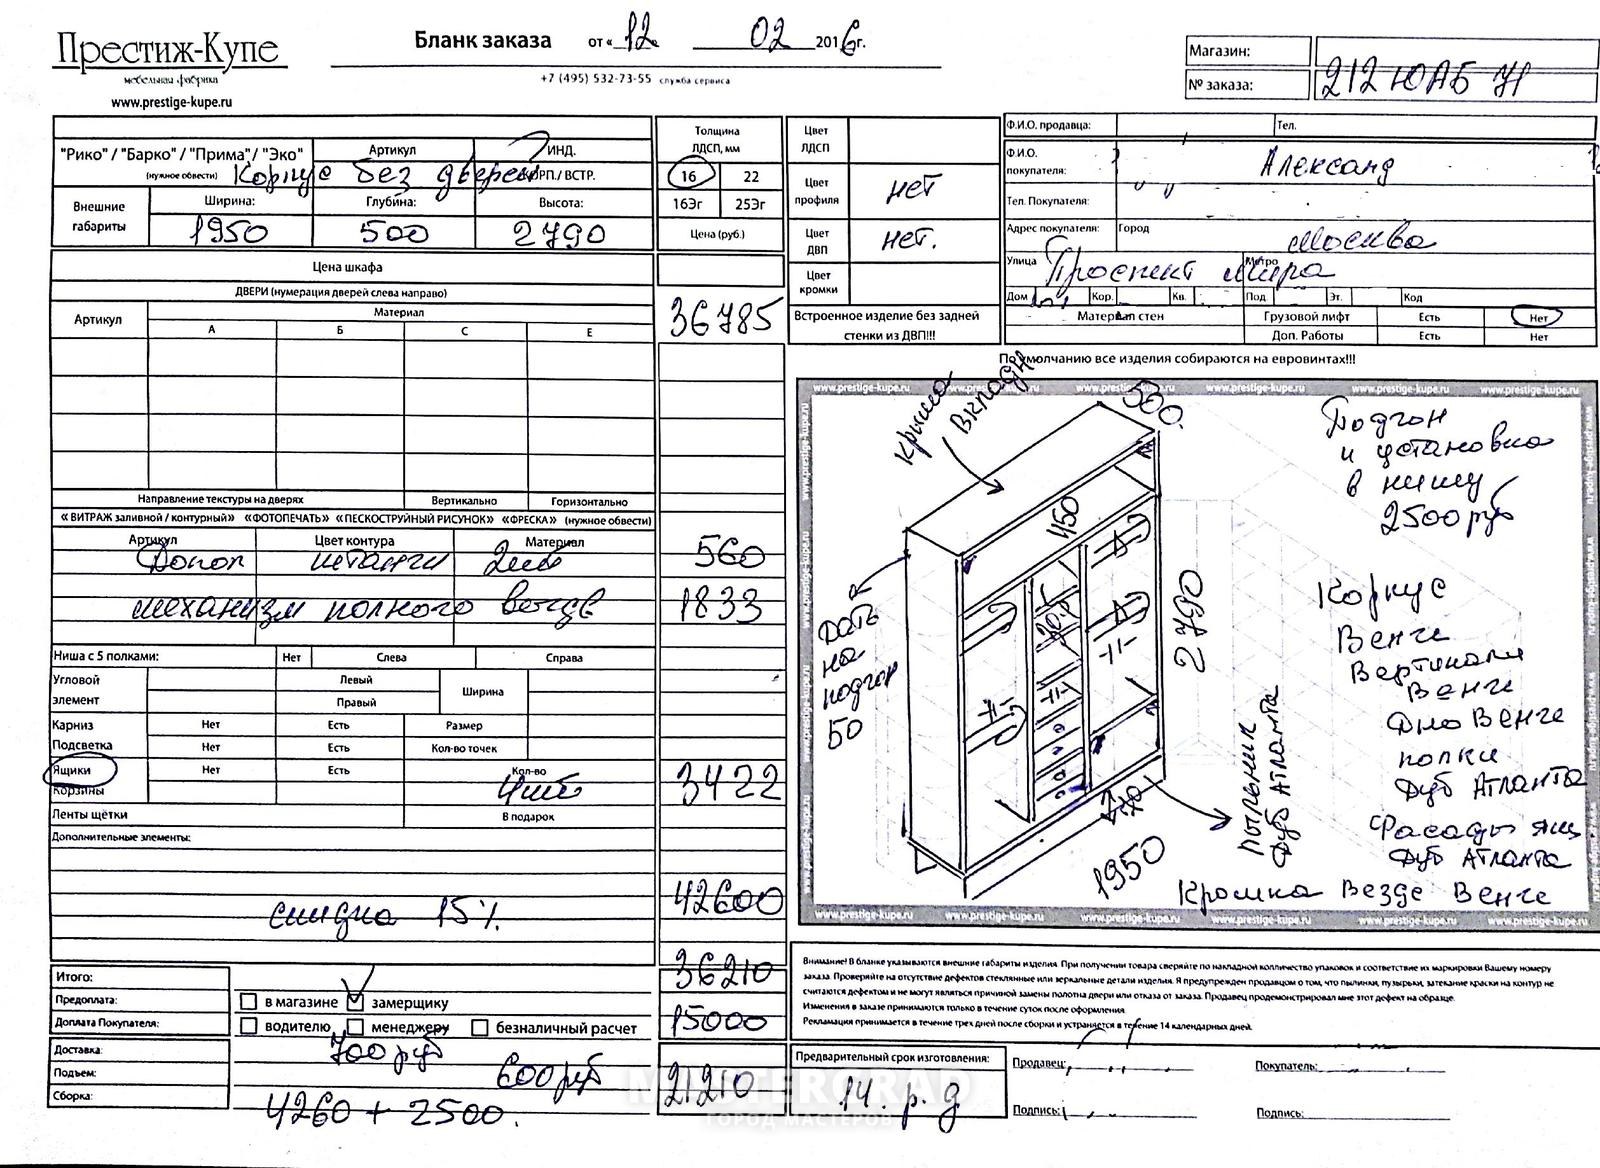 Престиж-Купе
мебельная фабрика
www.prestige-kupe.ru
Бланк заказа от « 12 » 02 2016 г.
+7 (495) 532-73-55 служба сервиса
Магазин:
№ заказа: 212 ЮАБ
"Рико" / "Барко" / "Прима" / "Эко"
(нужное обвести)
Артикул
ИНД.
КОРП./ ВСТР.
Корпус без дверей
Внешние габариты
Ширина: Глубина: Высота:
1950 500 2790
Толщина ЛДСП, мм
16 22
16Эг 25Эг
Цена (руб.)
Цвет ЛДСП
Цвет профиля нет
Цвет ДВП нет.
Цвет кромки
Встроенное изделие без задней стенки из ДВП!!!
Ф.И.О. продавца: Тел.
Ф.И.О. покупателя: Александ
Тел. Покупателя:
Адрес покупателя: Город Москва
Улица Проспект Мира Метро
Дом Кор. Кв. Под. Эт. Код
Материал стен Грузовой лифт Есть Нет
Доп. Работы Есть Нет
По умолчанию все изделия собираются на евровинтах!!!
Цена шкафа
36785
ДВЕРИ (нумерация дверей слева направо)
Артикул Материал
А Б С Е
Направление текстуры на дверях Вертикально Горизонтально
«ВИТРАЖ заливной / контурный» «ФОТОПЕЧАТЬ» «ПЕСКОСТРУЙНЫЙ РИСУНОК» «ФРЕСКА» (нужное обвести)
Артикул Цвет контура Материал
Допол штанги 2шт 560
механизм полного 1833
Ниша с 5 полками: Нет Слева Справа
Угловой элемент Левый Ширина
Правый
Карниз Нет Есть Размер
Подсветка Нет Есть Кол-во точек
Ящики Нет Есть Кол-во
Корзины 4шт 3422
Ленты щётки В подарок
Дополнительные элементы:
42600
скидка 15%
36210
Итого:
Предоплата: в магазине замерщику
15000
Доплата Покупателя: водителю менеджеру безналичный расчет
Доставка: 700 руб
Подъем: 600 руб
21210
Сборка: 4260 + 2500.
www.prestige-kupe.ru www.prestige-kupe.ru www.prestige-kupe.ru www.prestige-kupe.ru www.prestige-kupe.ru www.prestige-kupe.ru
крыша
вклад
500.
450
2790
1950
Дать
на
подгон
50
пыльник
Дуб Атланта
Подгон
и установка
в нишу
2500 руб
Корпус
Венге
Вертикали
Венге
Дно Венге
полки
Дуб Атланта
Фасады ящ.
Дуб Атланта
Кромка Везде Венге
www.prestige-kupe.ru www.prestige-kupe.ru www.prestige-kupe.ru www.prestige-kupe.ru www.prestige-kupe.ru
Внимание! В бланке указываются внешние габариты изделия. При получении товара сверяйте по накладной колличество упаковок и соответствие их маркировки Вашему номеру
заказа. Проверяйте на отсутствие дефектов стеклянные или зеркальные детали изделия. Я предупрежден продавцом о том, что пылинки, пузырьки, затекание краски на контур не
считаются дефектом и не могут являться причиной замены полотна двери или отказа от заказа. Продавец продемонстрировал мне этот дефект на образце.
Изменения в заказе принимаются только в течение суток после оформления.
Рекламация принимается в течение трех дней после сборки и устраняется в течение 14 календарных дней.
Предварительный срок изготовления:
14. р. д
Продавец: Покупатель:
Подпись: Подпись:
MASTERGRAD
ГОРОД МАСТЕРОВ